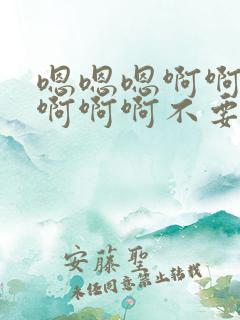 嗯嗯嗯啊啊
啊啊啊不要
安藤聖
未经同意禁止转载